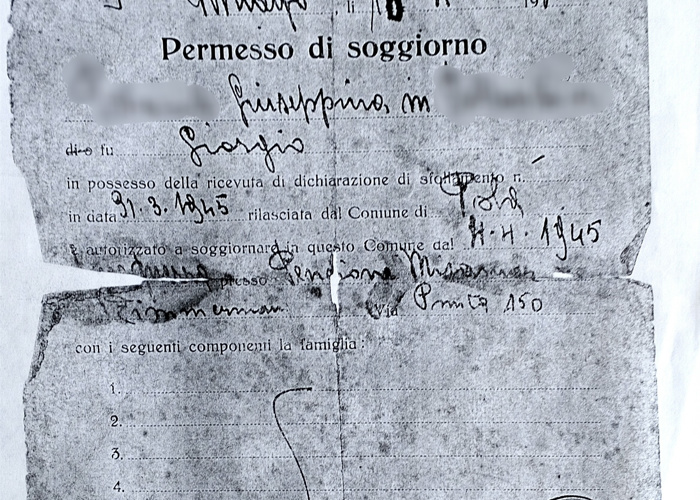 , li 10 194
Permesso di soggiorno
Giuseppina in
di o fu Giorgio
in possesso della ricevuta di dichiarazione di sfollamento n.
in data 31.3.1945 rilasciata dal Comune di Pola
è autorizzato a soggiornare in questo Comune dal 4.4.1945
presso Pensione
Zimmerman Via Punta 150
con i seguenti componenti la famiglia:
1.
2.
3.
4.